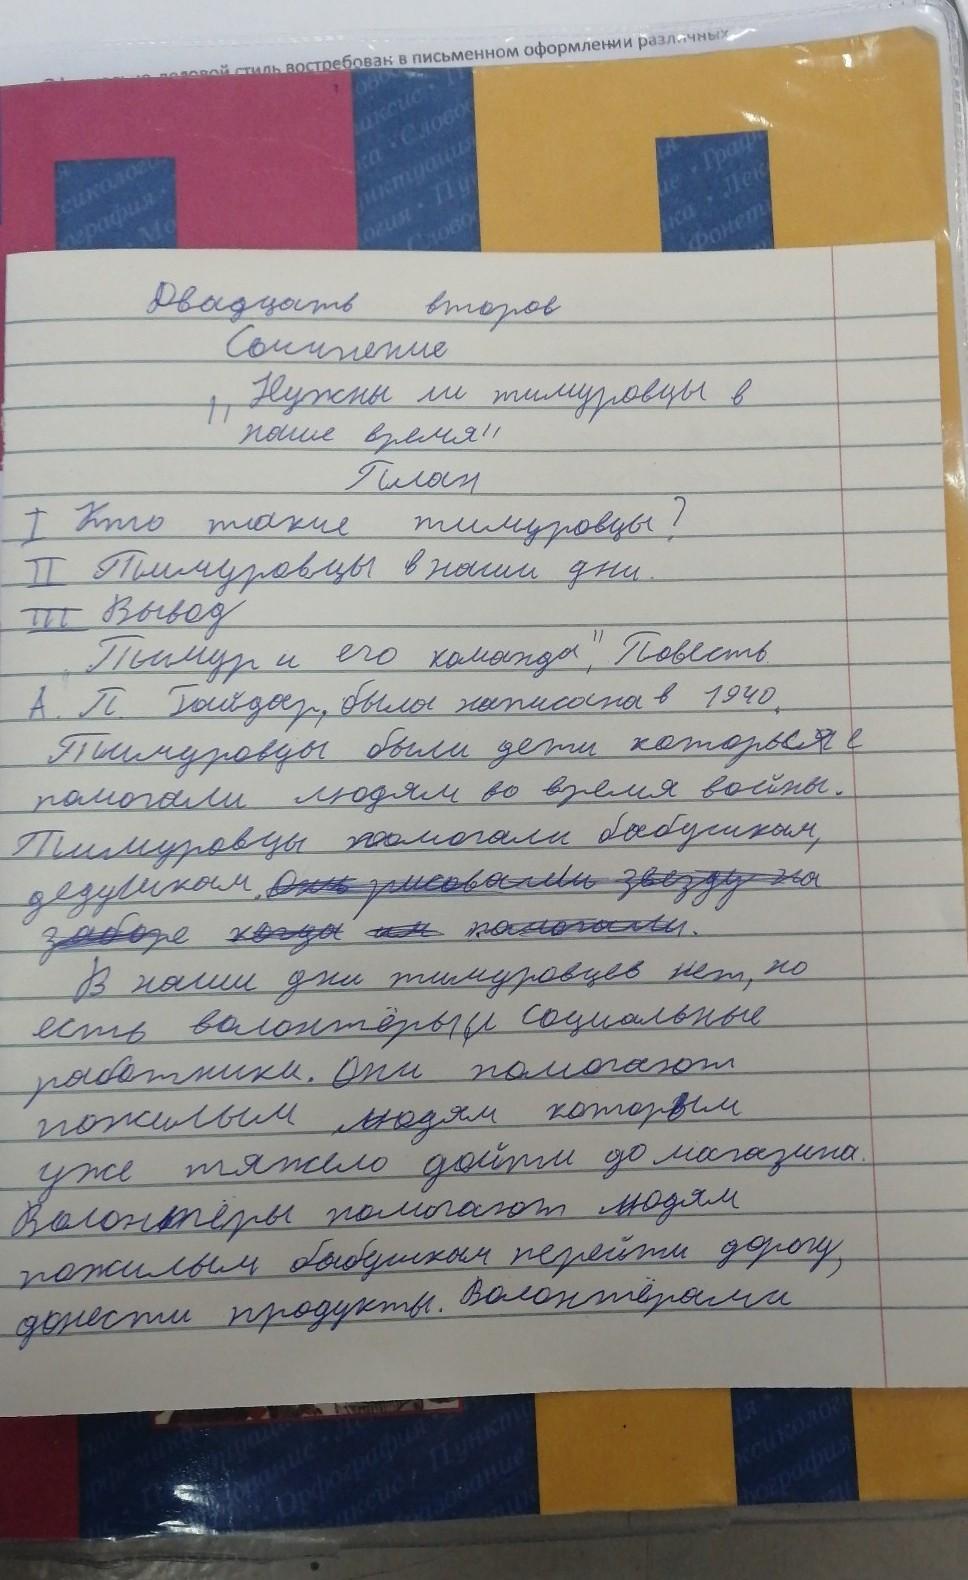 деловой стиль востребован в письменном оформлении различных
Двадцать второв
Сочинение
"Нужны ли тимуровцы в
наше время"
План
I Кто такие тимуровцы?
II Тимуровцы в наши дни.
III Вывод
"Тимур и его команда", Повесть
А. П. Гайдар, была написана в 1940.
Тимуровцы были дети которые
помогали людям во время войны.
Тимуровцы помогали бабушкам,
дедушкам. Они рисовали звезду на
заборе когда им помогали.
В наши дни тимуровцев нет, но
есть волонтёры и социальные
работники. Они помогают
пожилым людям которым
уже тяжело дойти до магазина.
Волонтёры помогают людям
пожилым бабушкам перейти дорогу,
донести продукты. Волонтёрами